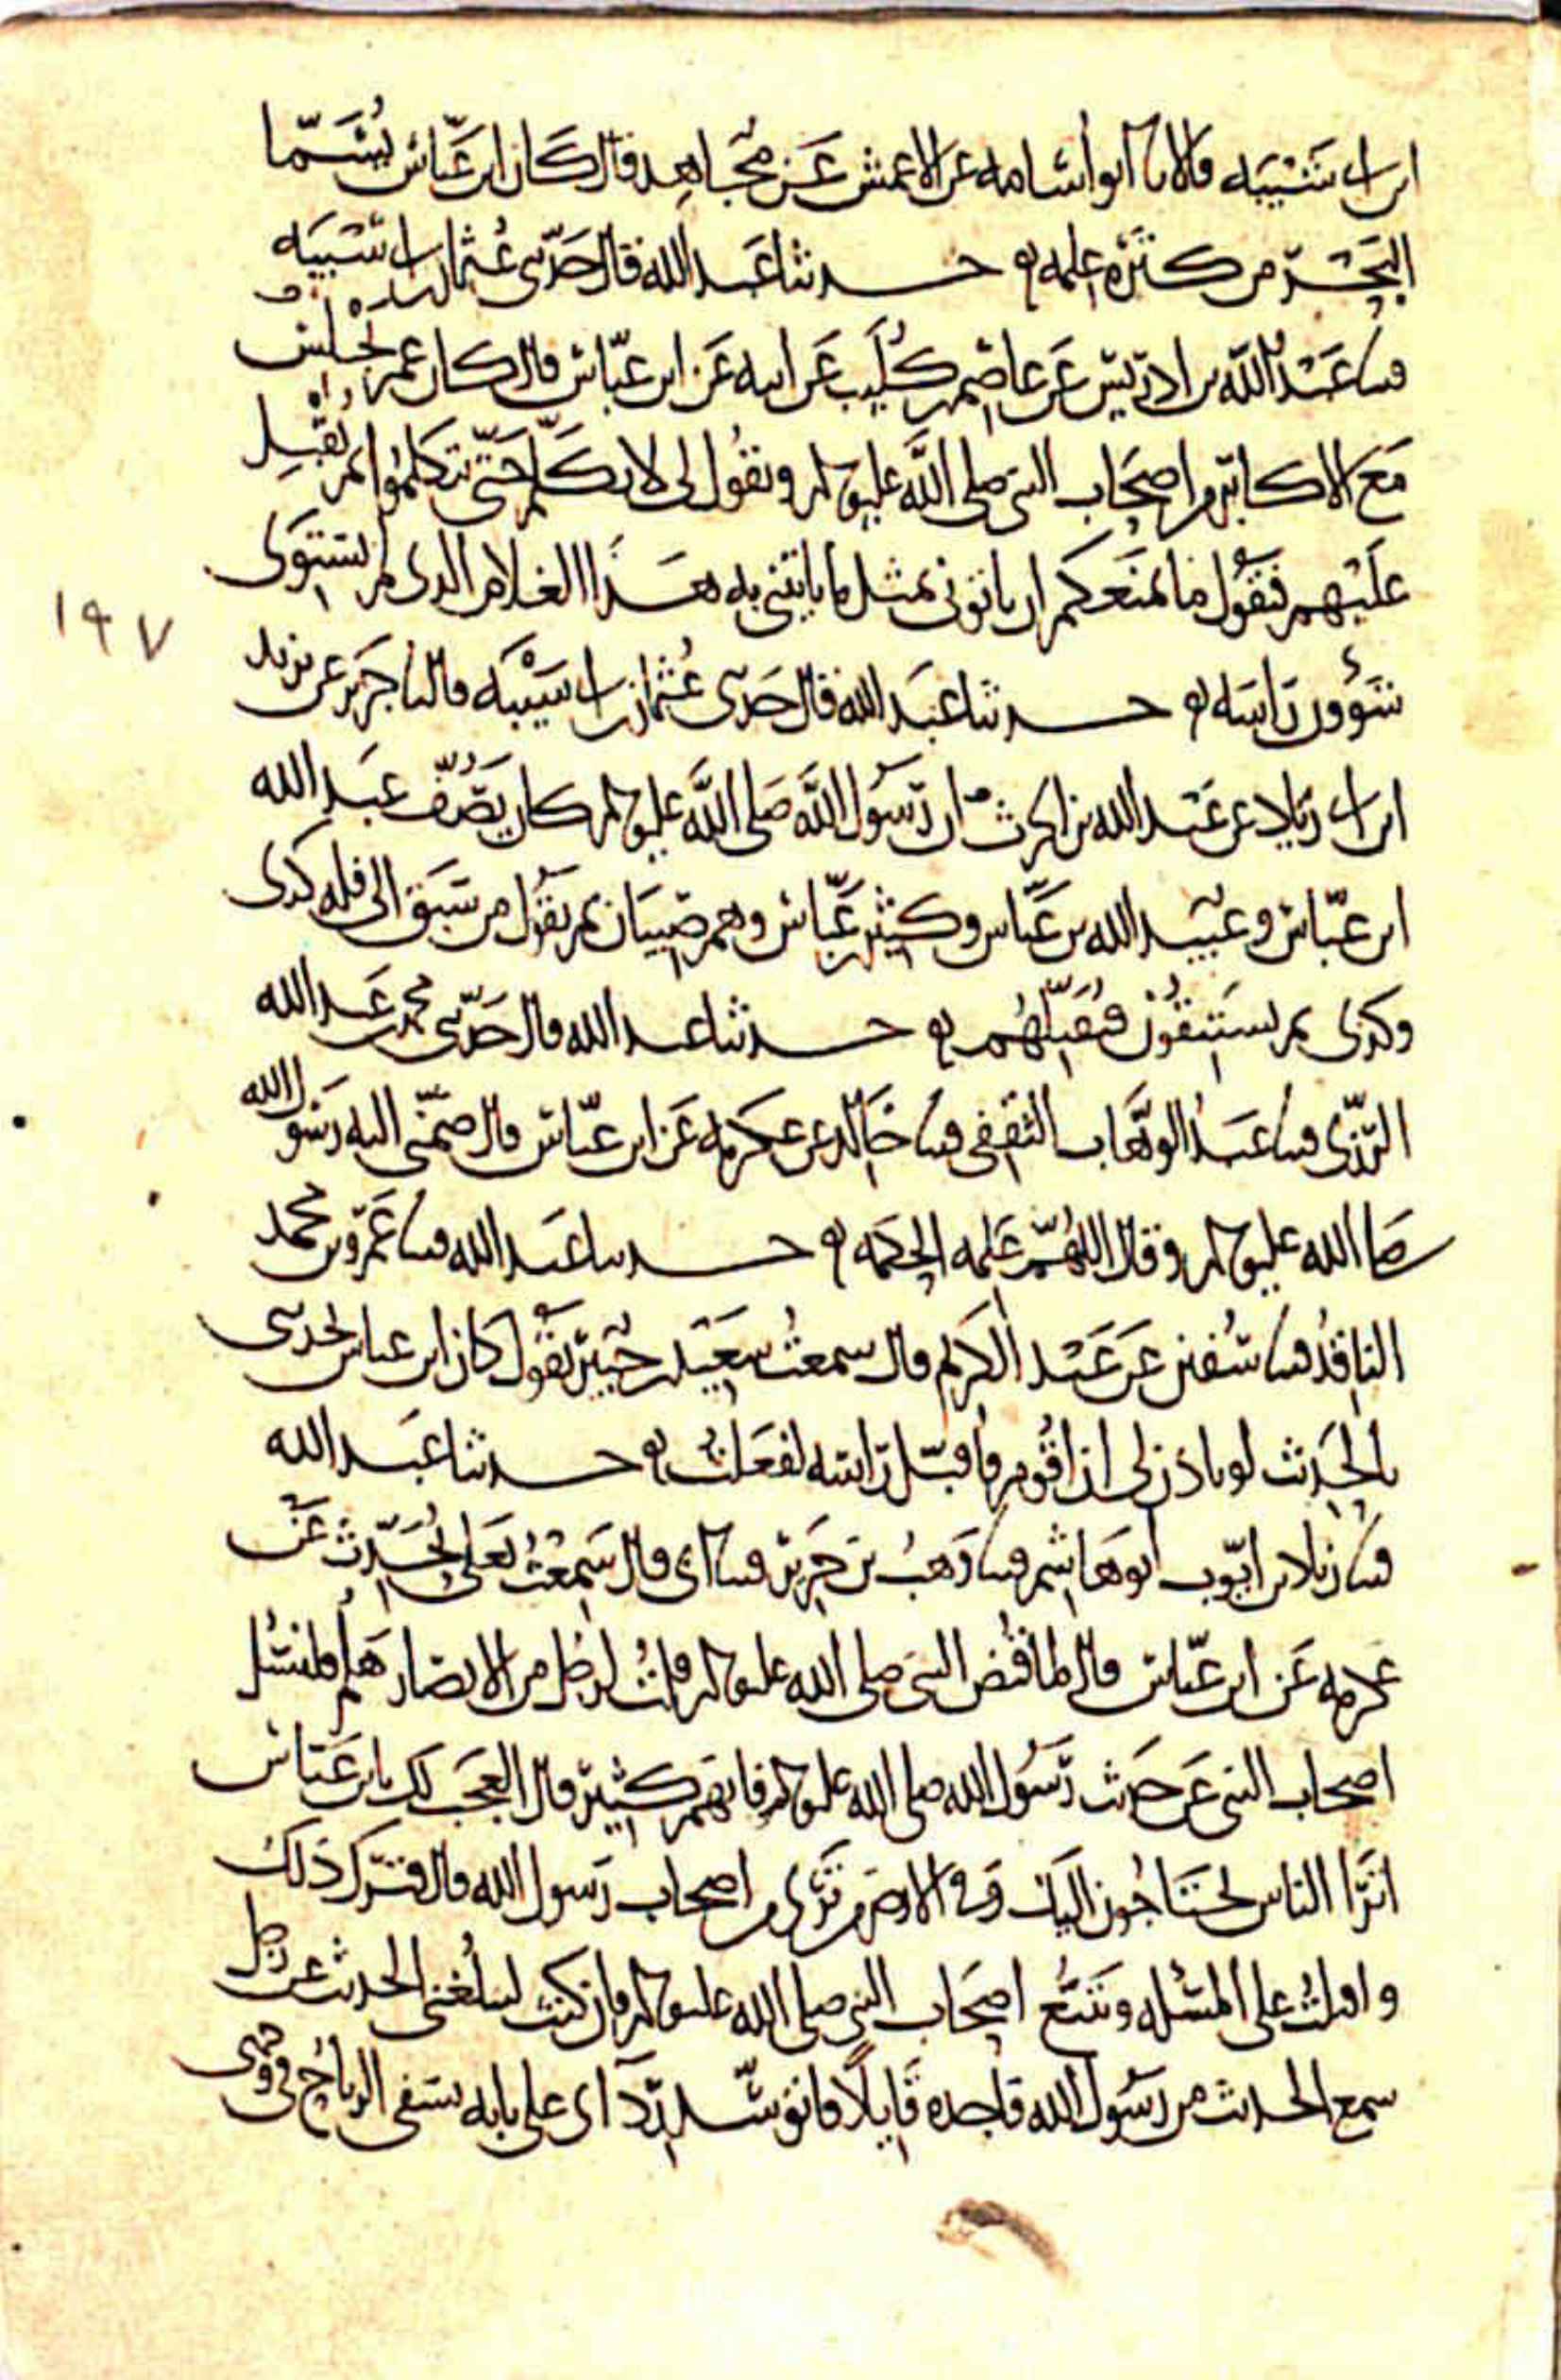 ابن ابي شيبه قالا نا ابو أسامه عن الاعمش عن مجاهد قال كان ابن عباس يُسَمّا
البحر من كثره علمه حدثنا عبد الله قال حدثني عثمان بن ابي شيبه
قثنا عبد الله بن ادريس عن عاصم بن كليب عن ابيه عن ابن عباس قال كان عمر يجلس
مع الاكابر من اصحاب النبي صلى الله عليه وسلم ويقول لي لا تكلم حتى يتكلموا ثم يقبل
عليهم فيقول ما يمنعكم ان ياتوني بمثل ما ياتيني به هذا الغلام الذي لم يستوي
شؤون راسه حدثنا عبد الله قال حدثني عثمان بن ابي شيبه قال نا جرير عن يزيد
ابن ابي زياد عن عبد الله بن الحرث ان رسول الله صلى الله عليه وسلم كان يصف عبد الله
ابن عباس وعبيد الله بن عباس وكثير بن عباس وهم صبيان ثم يقول من سبق الي فله كدى
وكدى ثم يستبقون فيقبلهم حدثنا عبد الله قال حدثني محمد بن عبد الله
الرزي قثنا عبد الوهاب الثقفي قثنا خالد عن عكرمه عن ابن عباس قال ضمني اليه رسول الله
صلى الله عليه وسلم وقال اللهم علمه الحكمه حدثنا عبد الله قثنا عمرو بن محمد
الناقد قثنا سفين عن عبد الكريم قال سمعت سعيد بن جبير يقول كان ابن عباس يحدثني
بالحديث لو ياذن لي ان اقوم فاقبل راسه لفعلت حدثنا عبد الله
قثنا زياد بن ايوب ابو هاشم قثنا وهب بن جرير قثنا ابي قال سمعت يعلى يحدث عن
عكرمه عن ابن عباس قال لما قبض النبي صلى الله عليه وسلم قلت لرجل من الانصار هلم فلنسئل
اصحاب النبي عن حديث رسول الله صلى الله عليه وسلم فانهم كثير قال العجب لك يا بن عباس
اترا الناس يحتاجون اليك وفي الارض من ترى من اصحاب رسول الله قال فترك ذلك
واقبلت على المسئله وتتبع اصحاب النبي صلى الله عليه وسلم فان كنت ليبلغني الحديث عن رجل
سمع الحديث من رسول الله فاجده قايلا فاتوسد رداي على بابه تسفي الرياح في وجهي
١٩٧